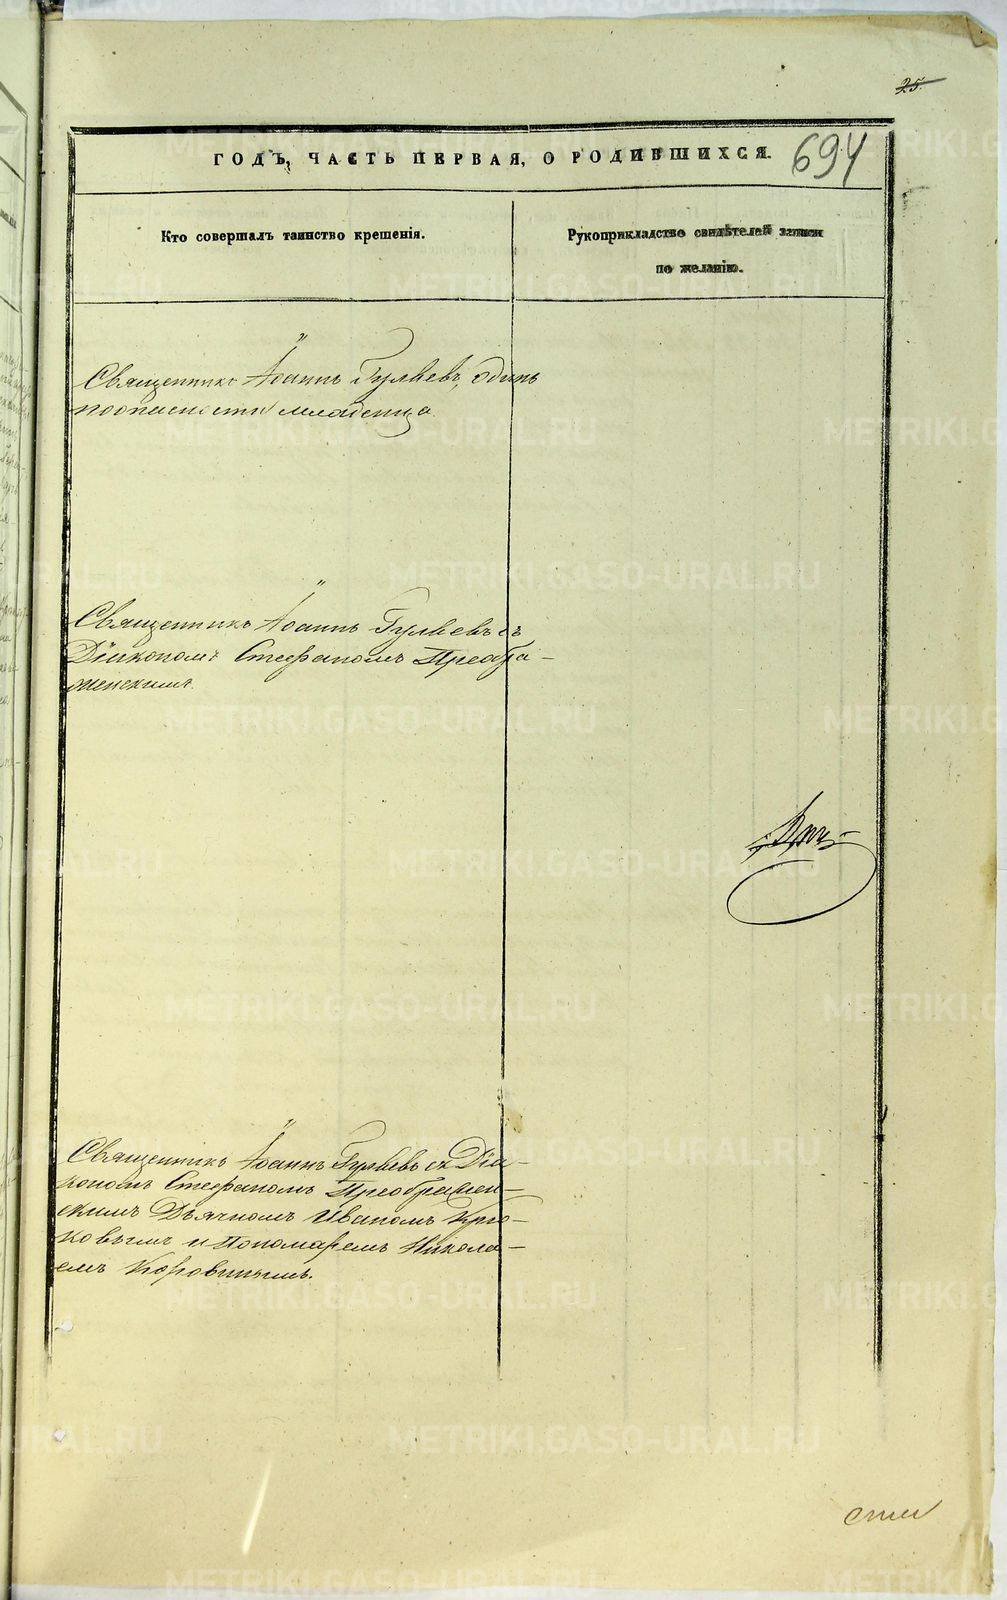 25.
ГОДЪ, ЧАСТЬ ПЕРВАЯ, О РОДИВШИХСЯ.
694
Кто совершалъ таинство крещенія.
Рукоприкладство свидѣтелей записи
по желанію.
Священникъ Іоаннъ Гуляевъ, одинъ
по опасности младенца.
Священникъ Іоаннъ Гуляевъ съ
Діакономъ Стефаномъ Преобра-
женскимъ.
Священникъ Іоаннъ Гуляевъ съ Діа-
кономъ Стефаномъ Преображен-
скимъ Дьячкомъ Иваномъ Крю-
ковымъ и Пономаремъ Никола-
емъ Коровинымъ.
METRIKI.GASO-URAL.RU